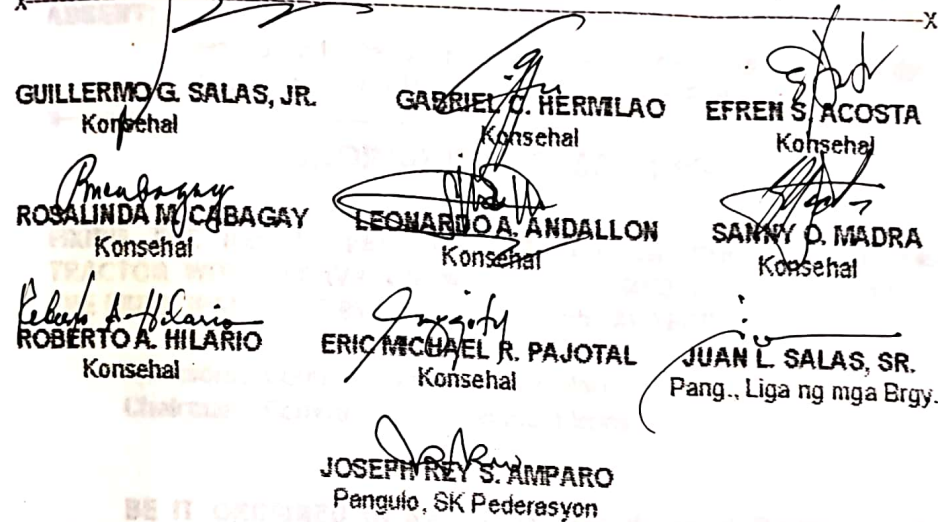 x-----------------------------------------------------------------------x
GUILLERMO G. SALAS, JR.
Konsehal
GABRIEL C. HERMILAO
Konsehal
EFREN S. ACOSTA
Konsehal
ROSALINDA M. CABAGAY
Konsehal
LEONARDO A. ANDALLON
Konsehal
SANNY O. MADRA
Konsehal
ROBERTO A. HILARIO
Konsehal
ERIC MICHAEL R. PAJOTAL
Konsehal
JUAN L. SALAS, SR.
Pang., Liga ng mga Brgy.
JOSEPH REY S. AMPARO
Pangulo, SK Pederasyon